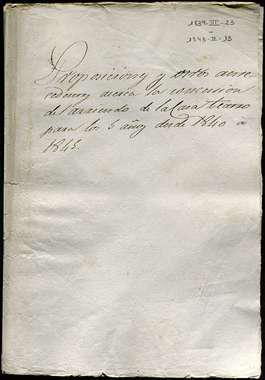 1839-XII-23
1843-II-18
Proposicion y otros ante-
cedentes acerca la concesion
del arriendo de la Casa teatro
para los 5 años desde 1840 a
1845.